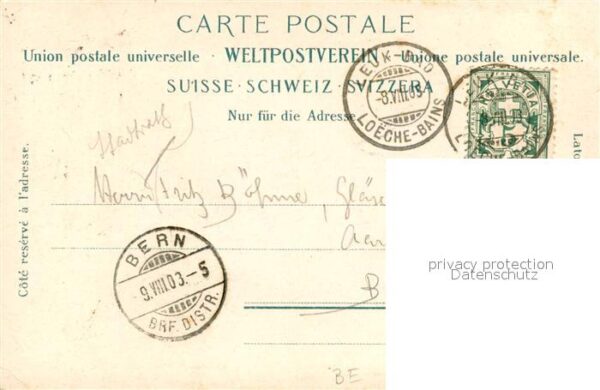 CARTE POSTALE
Union postale universelle · WELTPOSTVEREIN · Unione postale universale.
SUISSE · SCHWEIZ · SVIZZERA
Nur für die Adresse
LEUK-BAD
-8.VIII.03
LOÈCHE-BAINS
HELVETIA
5
Côté réservé à l'adresse.
Lato
Herrn Fritz Böhne,
Aar
B
BERN
9.VIII.03.-5
BRF. DISTR.
privacy protection
Datenschutz
BE